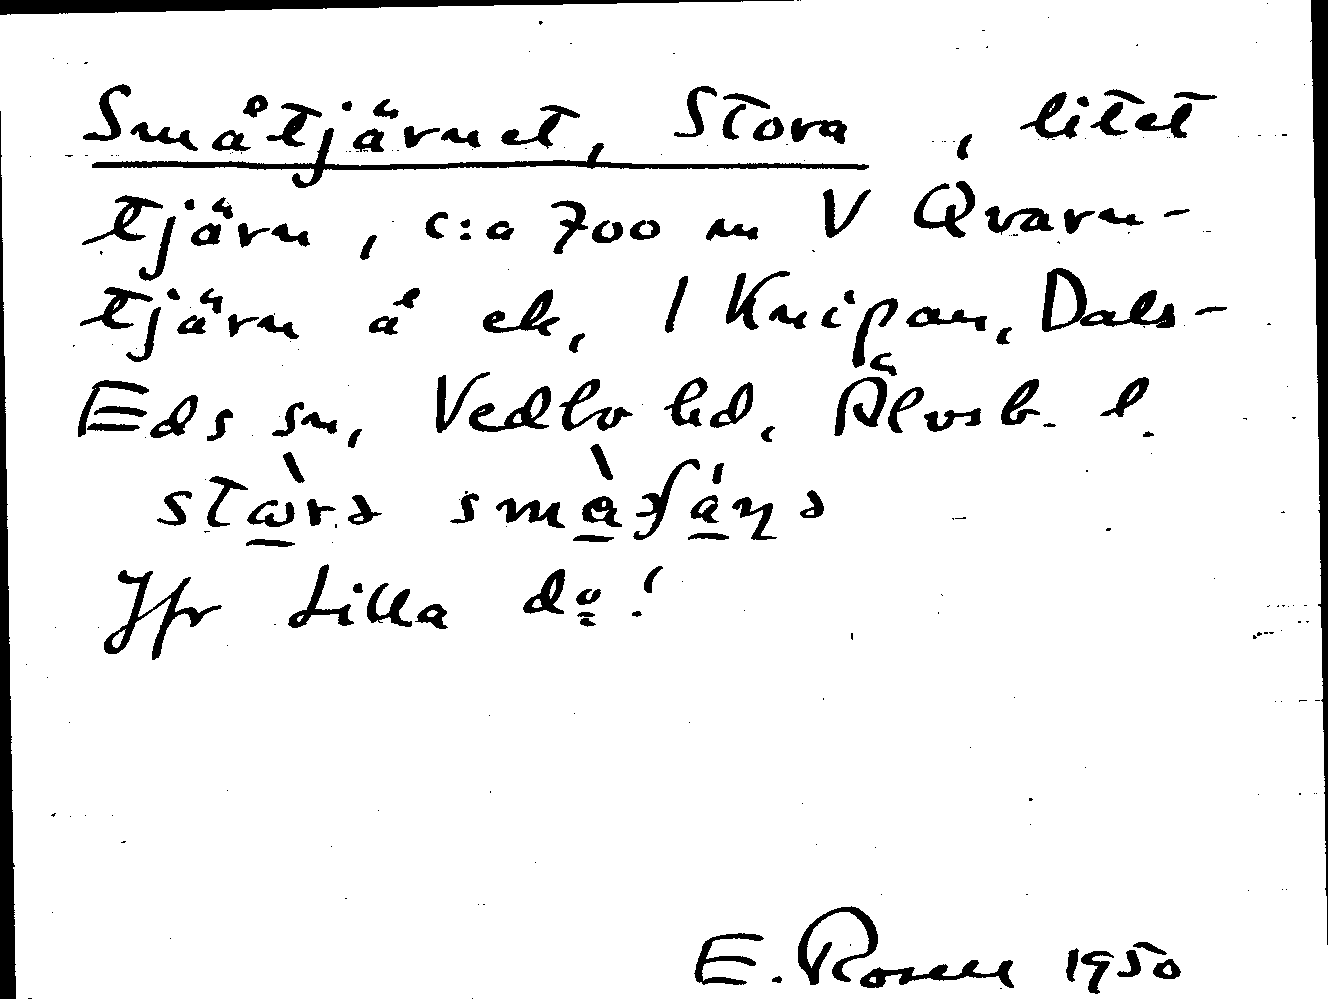 Småtjärnet, Stora, litet
tjärn, c:a 700 m V Qvarn-
tjärn å ek, 1 Knipan, Dals-
Eds sn, Vedbo hd, Älvsb. l.
Jfr Lilla do!
E. Rosell 1950